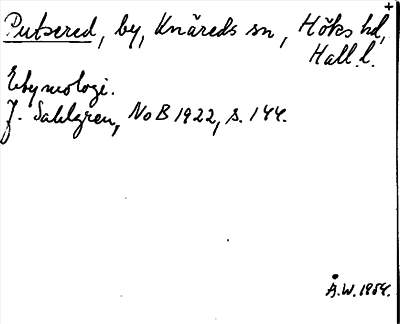 Putsered, by, Knäreds sn, Höks hd,
Hall. l.
Etymologi.
J. Sahlgren, NoB 1922, s. 144.
Å.W. 1954.